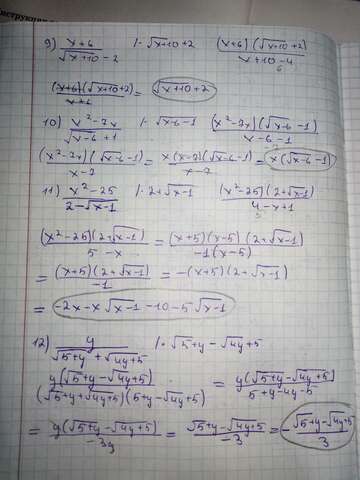 9) x+6 / (√x+10 - 2)   /· √x+10 + 2   (x+6)(√x+10 + 2) / (x+10-4)
6
(x+6)(√x+10 + 2) / (x+6) = √x+10 + 2
10) x²-7x / (√x-6 + 1)   /· √x-6 - 1   (x²-7x)(√x-6 - 1) / (x-6-1)
(x²-7x)(√x-6 - 1) / (x-7) = x(x-7)(√x-6 - 1) / (x-7) = x(√x-6 - 1)
11) x²-25 / (2-√x-1)   /· 2+√x-1   (x²-25)(2+√x-1) / (4-x+1)
5
(x²-25)(2+√x-1) / (5-x) = (x+5)(x-5)(2+√x-1) / (-1(x-5))
= (x+5)(2+√x-1) / (-1) = -(x+5)(2+√x-1)
= -2x-x√x-1 -10-5√x-1
12) y / (√5+y + √4y+5)   /· √5+y - √4y+5
y(√5+y - √4y+5) / (√5+y + √4y+5)(√5+y - √4y+5) = y(√5+y - √4y+5) / (5+y-4y-5)
= y(√5+y - √4y+5) / (-3y) = (√5+y - √4y+5) / (-3) = -(√5+y - √4y+5) / 3